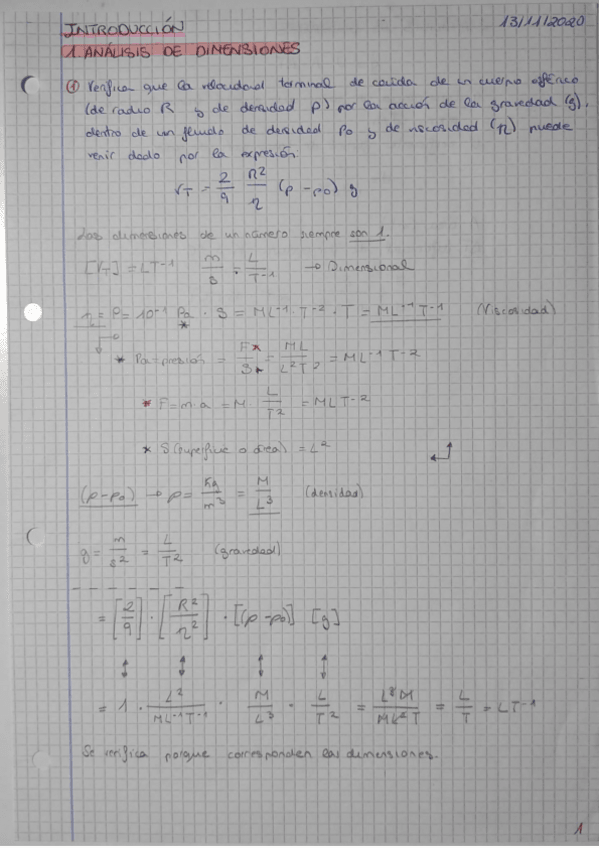 INTRODUCCIÓN 13/11/2020
1. ANÁLISIS DE DIMENSIONES
① Verifica que la velocidad terminal de caída de un cuerpo esférico
(de radio R y de densidad ρ) por la acción de la gravedad (g),
dentro de un fluido de densidad ρ0 y de viscosidad (η) puede
venir dado por la expresión:
VT = 2/9 R²/η (ρ - ρ0) g
Las dimensiones de un número siempre son 1.
[VT] = LT-1 m/s = L/T-1 → Dimensional
η = P = 10-1 Pa · S = ML-1 · T-2 · T = ML-1T-1 (Viscosidad)
* Pa = presión = F*/S* = ML/L²T² = ML-1T-2
* F = m·a = M · L/T² = MLT-2
* S (superficie o área) = L²
(ρ-ρ0) → ρ = Kg/m³ = M/L³ (densidad)
g = m/s² = L/T² (gravedad)
= [2/9] · [R²/η²] · [(ρ-ρ0)] [g]
= 1 · L²/ML-1T-1 · M/L³ · L/T² = L³M/ML²T = L/T = LT-1
Se verifica porque corresponden las dimensiones.
1